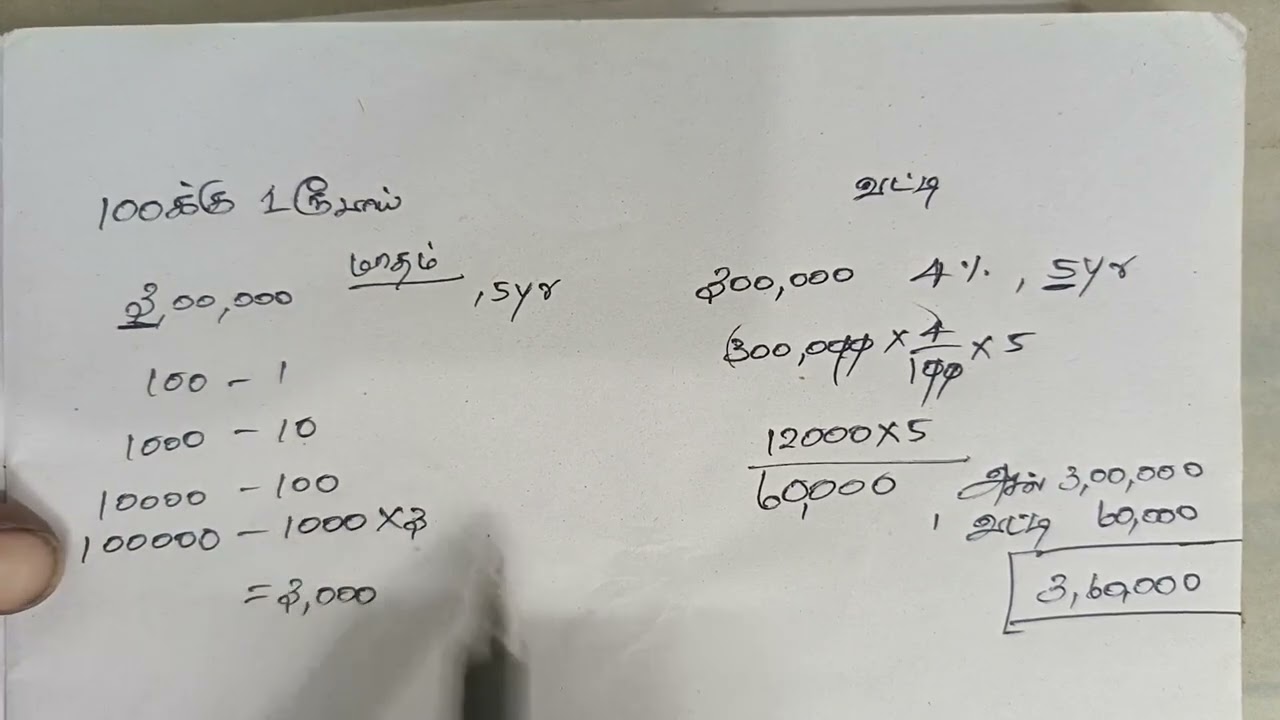 100க்கு 1 ரூபாய்
மாதம்
3,00,000 , 5yr
100 - 1
1000 - 10
10000 - 100
100000 - 1000 × 3
= 3,000
வட்டி
300,000 4% , 5yr
300,000 × 4/100 × 5
12000 × 5
60,000
அசல் 3,00,000
வட்டி 60,000
3,60,000